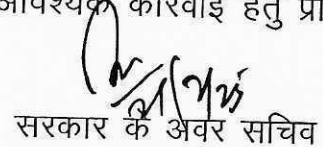 आवश्यक कार्रवाई हेतु
सरकार के अवर सचिव